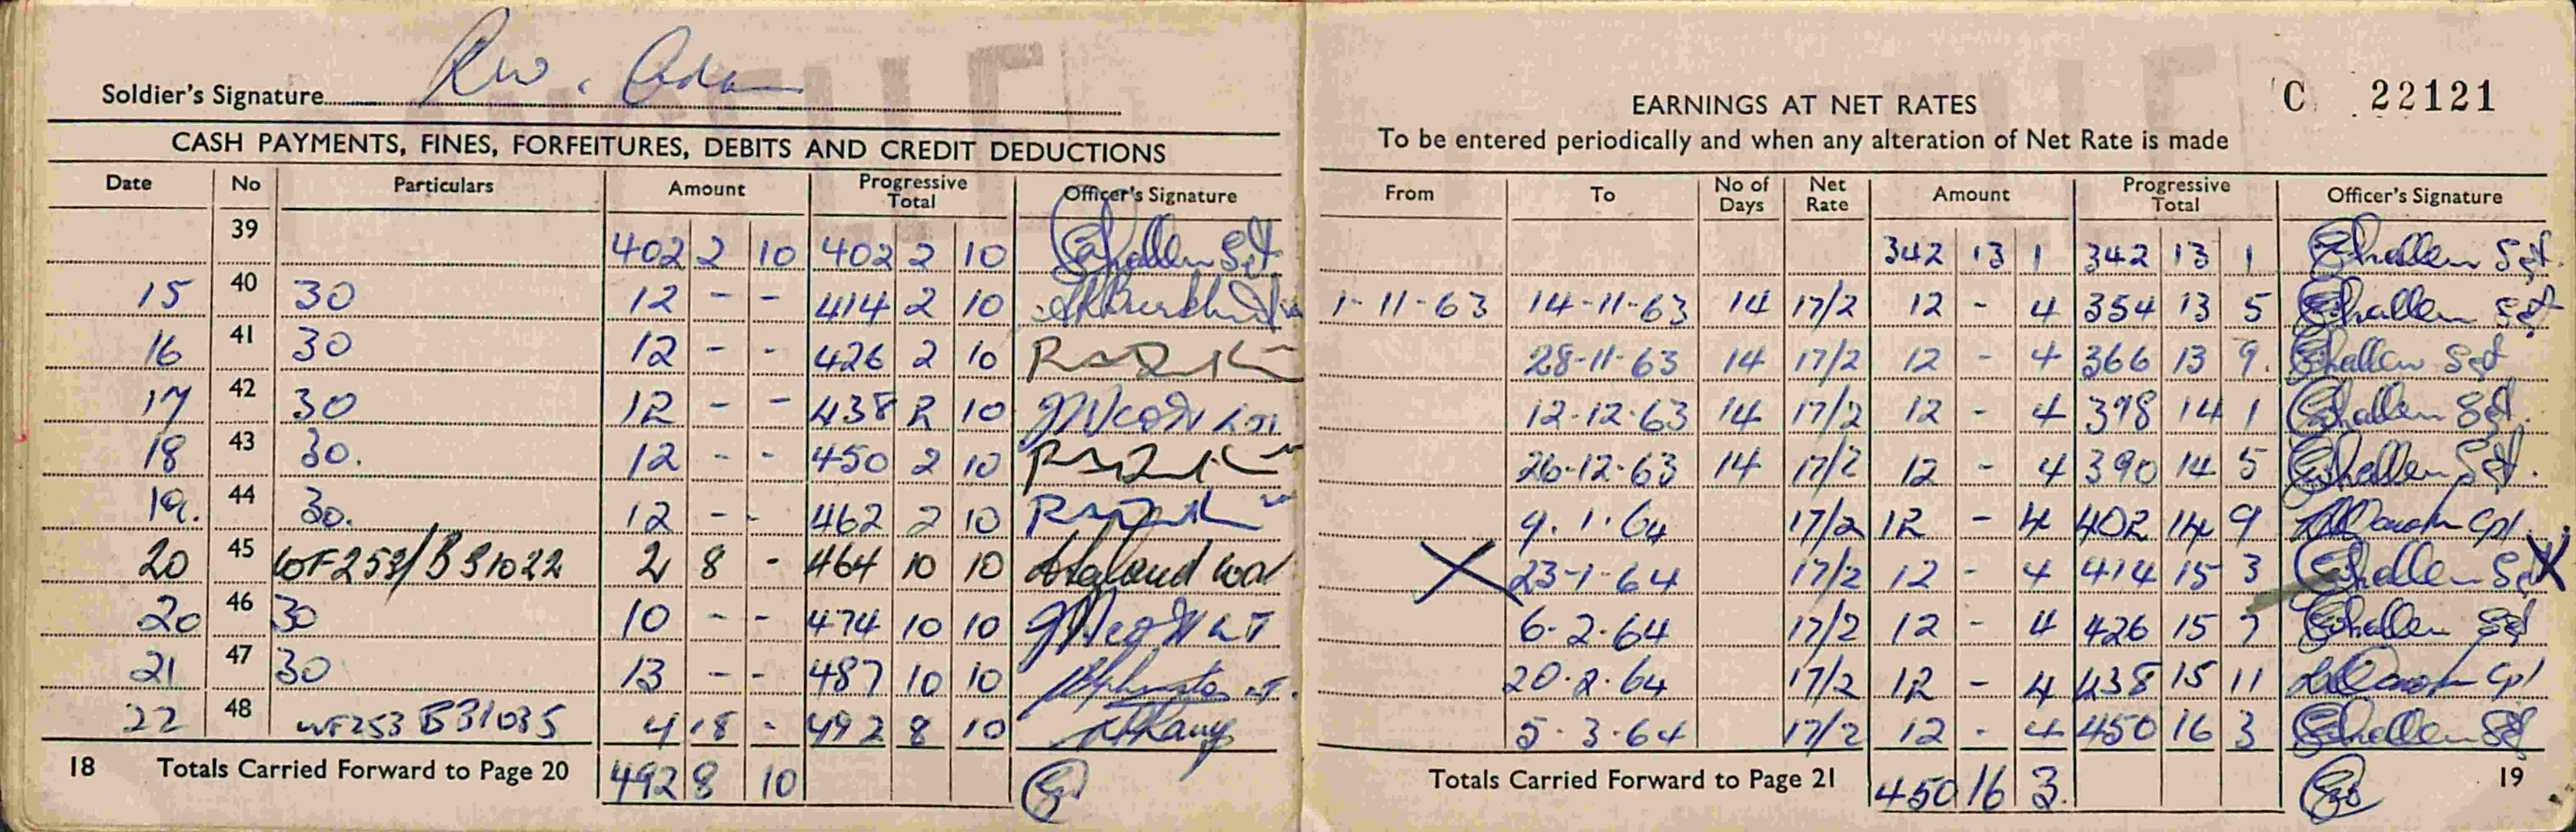 Soldier's Signature
CASH PAYMENTS, FINES, FORFEITURES, DEBITS AND CREDIT DEDUCTIONS
Date No Particulars Amount Progressive Total Officer's Signature
39 402 2 10 402 2 10 Sgt
15 40 30 12 - - 414 2 10
16 41 30 12 - - 426 2 10
17 42 30 12 - - 438 2 10
18 43 30. 12 - - 450 2 10
19. 44 30. 12 - - 462 2 10
20 45 WF253/B31022 2 8 - 464 10 10
20 46 30 10 - - 474 10 10
21 47 30 13 - - 487 10 10
22 48 WF253 B31035 4 18 - 492 8 10
18 Totals Carried Forward to Page 20 492 8 10
C 22121
EARNINGS AT NET RATES
To be entered periodically and when any alteration of Net Rate is made
From To No of Days Net Rate Amount Progressive Total Officer's Signature
342 13 1 342 13 1 Sgt.
1-11-63 14-11-63 14 17/2 12 - 4 354 13 5 Sgt
28-11-63 14 17/2 12 - 4 366 13 9. Sgt
12-12-63 14 17/2 12 - 4 378 14 1 Sgt.
26-12-63 14 17/2 12 - 4 390 14 5 Sgt.
9.1.64 17/2 12 - 4 402 14 9 Cpl.
X 23-1-64 17/2 12 - 4 414 15 3 Sgt X
6-2-64 17/2 12 - 4 426 15 7 Sgt
20.2.64 17/2 12 - 4 438 15 11 Cpl
5-3-64 17/2 12 - 4 450 16 3 Sgt
Totals Carried Forward to Page 21 450 16 3. 19